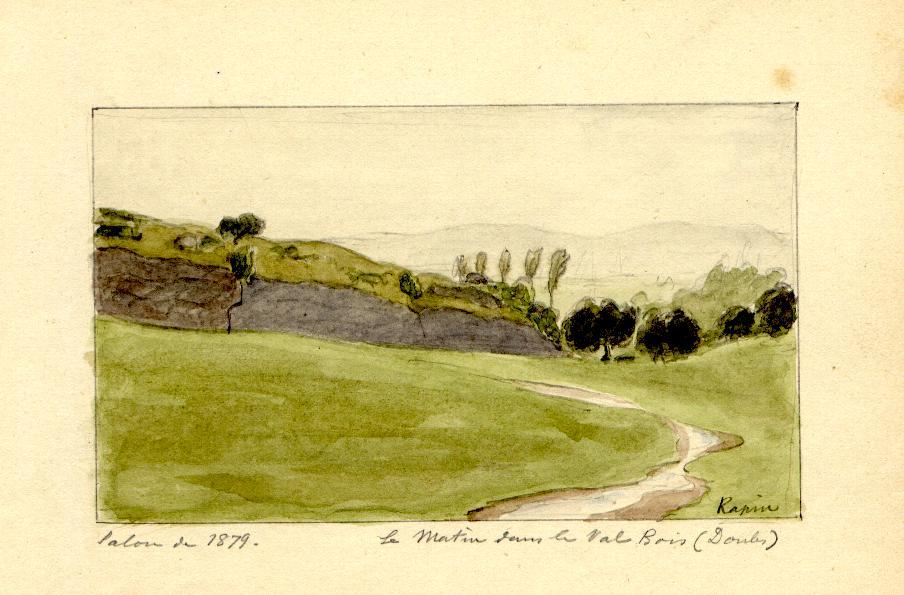 Rapin
Salon de 1879.
Le Matin dans le Val Bois (Doubs)